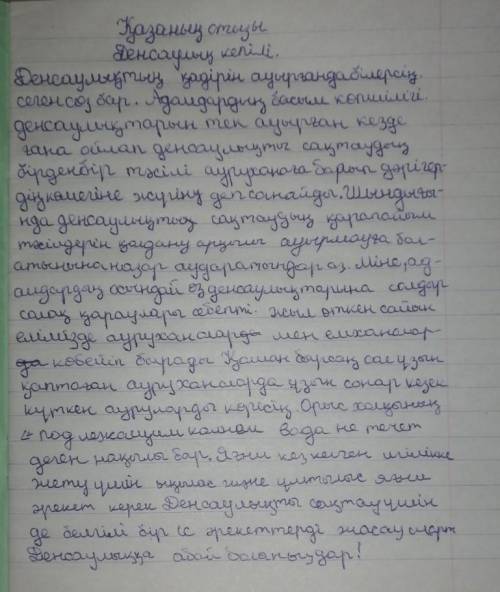 Қазаның отызы
Денсаулық кепілі.
Денсаулықтың қадірін ауырғанда білерсің.
сеген сөз бар. Адамдардың басым көпшілігі.
денсаулықтарын тек ауырған кезде
ғана ойлап денсаулықты сақтаудың
бірден бір тәсілі ауруханаға барып дәрігер-
дің көмегіне жүгіну деп санайды. Шындығы-
нда денсаулықты сақтаудың қарапайым
тәсілдерін қолдану арқылы ауырмауға бол-
атынына назар аударатындар аз. Міне, ад-
амдардың осындай өз денсаулықтарына салдыр
салақ қараулары себепті. жыл өткен сайын
елімізде ауруханалар мен емханалар
көбейіп барады Қашан барсаң сап ұзын
қаптаған ауруханаларда ұзын сонар кезек
күткен ауруларды көресің. Орыс халқының
под лежащим камнем вода не течет
деген нақылы бар. Яғни кез келген игілікке
жету үшін ықылас және ұмтылыс яғни
әрекет керек Денсаулықты сақтау үшін
де белгілі бір іс әрекеттерді жасау
Денсаулыққа абай болаңыздар!